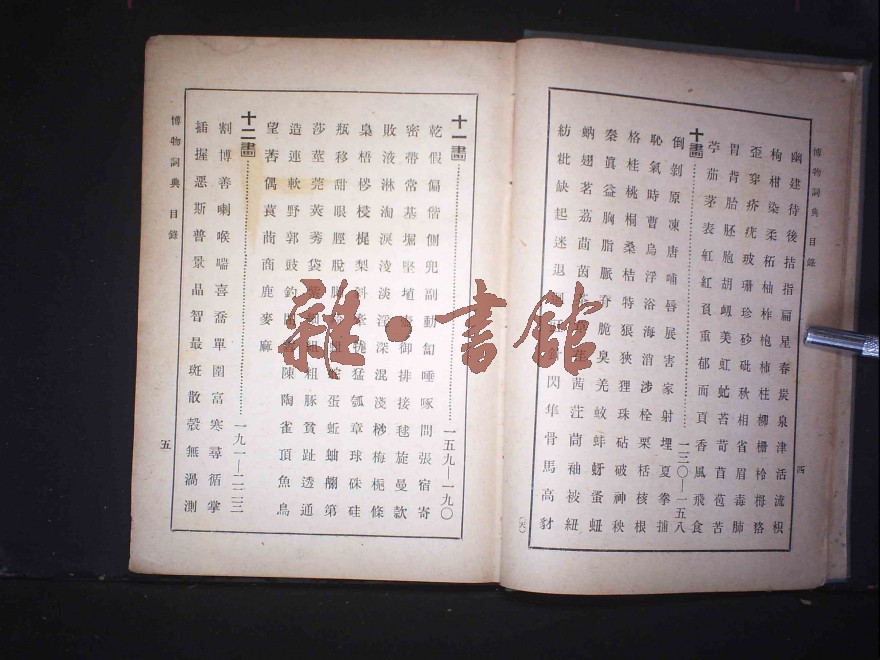 博物詞典 目錄
四
幽建待後拮指扁星春炭泉津活流枳
枸柑染柔柘柚柞枹柿柱柳柵柃
歪穿疥疣玻珊珍砂砒秋相省眉毒肺
胃背胎胚胞胡美虹苔苛苜苞苦
苧茄茅表紅頁重郁面頁香風飛食
十畫
一三〇—一五八
倒剝原凍唐哺唇展害家射埋夏拳捕
恥氣時曹烏浮浴海消涉栓栗栝核根
格桂桃桐桑桔特狼狹狸珠砧破神秧
秦眞益胸脂脈脆臭羌蚊蚌蚜蚤蚯
蚋翅茗荔茴茵茜茳茼袖被紐
紡粃缺起迷退閃隼骨馬高豺
博物詞典 目錄
五
十一畫
一五九—一九〇
乾假偏偕側兜副動匐唾啄問張宿寄
密帶常基堀堅埴御排接毬旋曼款
敗液淋淘淚淩淡淫深混淺桫梅梔條
梟梧梯梨斜猛瓠章球硃硅
瓶移甜眼脛脫蛋蚯蚰第
莎莖莞莢莠袋粗豚貧趾透通
造連軟野郭豉釣陳陶雀頂魚鳥
望菩偶商鹿麥麻
十二畫
一九一—二二三
割博善喇喉喘喜喬單圍富寒尋循掌
插握惡斯普景晶智最斑散殼無渦測
雜·書館